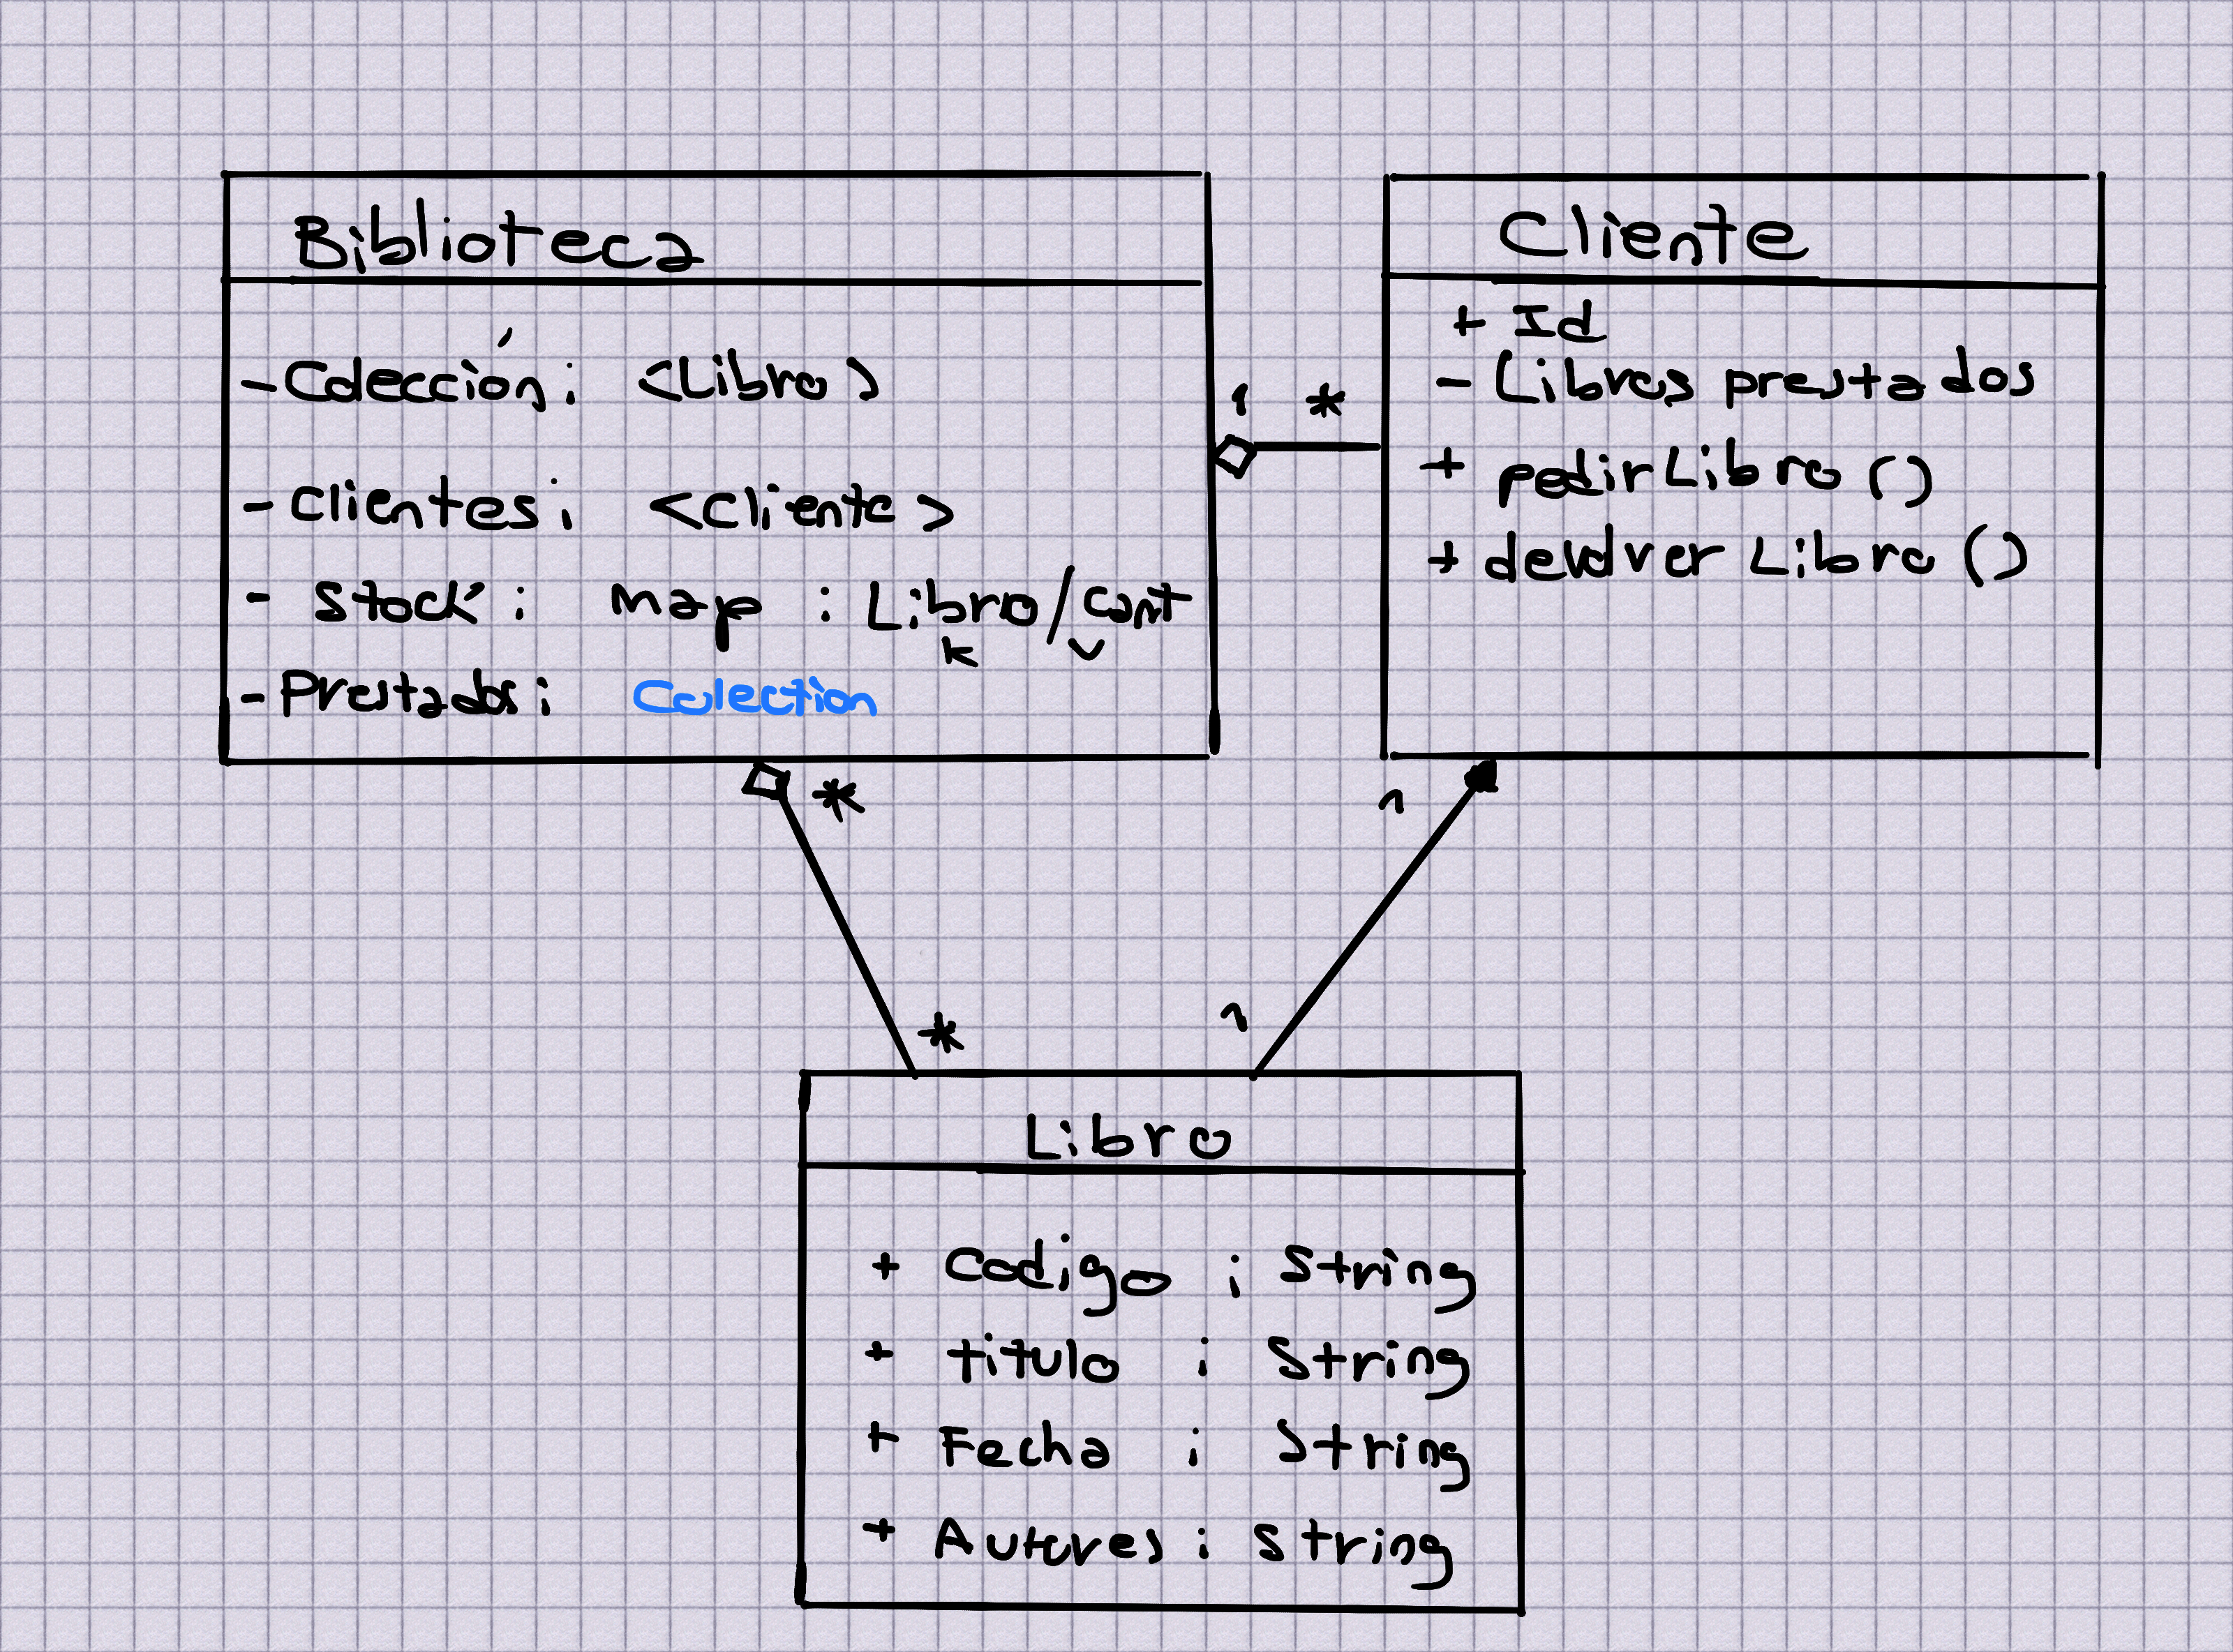 Biblioteca
- Colección: <Libro>
- Clientes: <Cliente>
- Stock: map : Libro/Cant
K V
- Prestados: Colection
Cliente
+ Id
- Libros prestados
+ pedirLibro ()
+ devolver Libro ()
1 *
*
1
*
1
Libro
+ Codigo : String
+ titulo : String
+ Fecha : String
+ Autores : String